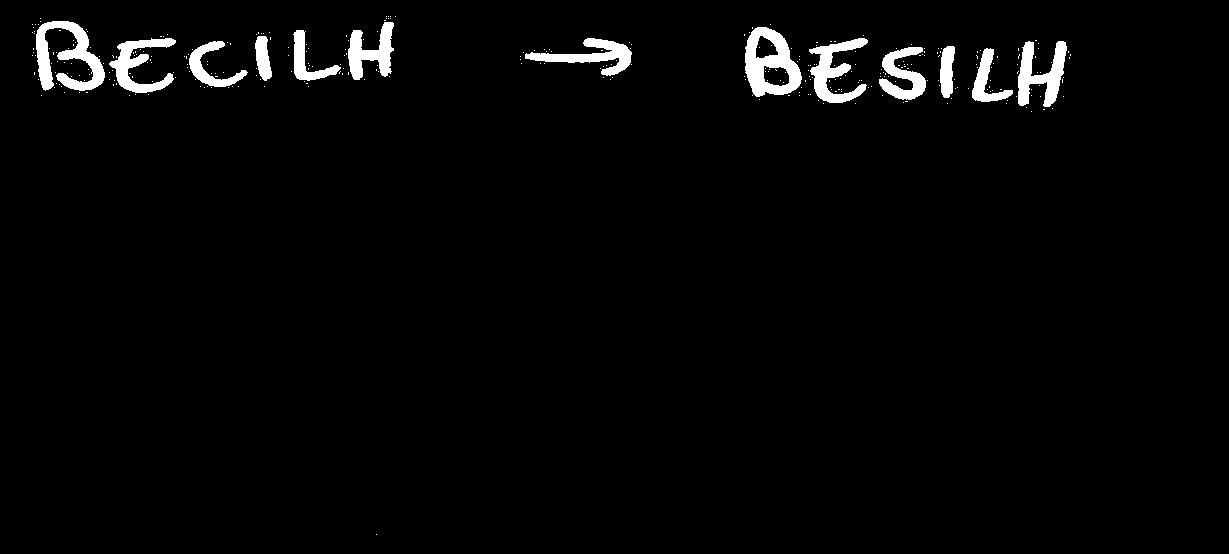 BECILH → BESILH